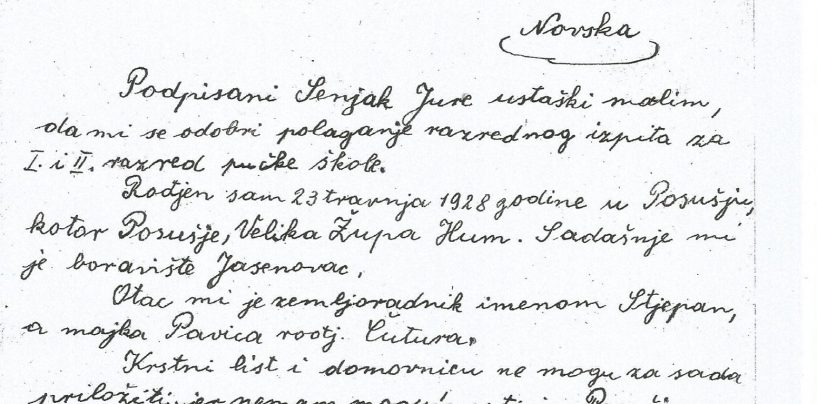 Novska
Podpisani Senjak Jure ustaški molim,
da mi se odobri polaganje razrednog izpita za
I. i II. razred pučke škole.
Rodjen sam 23 travnja 1928 godine u Posušju,
kotar Posušje, Velika Župa Hum. Sadašnje mi
je boravište Jasenovac.
Otac mi je zemljoradnik imenom Stjepan,
a majka Pavica rodj. Čutura.
Krstni list i domovnicu ne mogu za sada
priložiti jer nemam